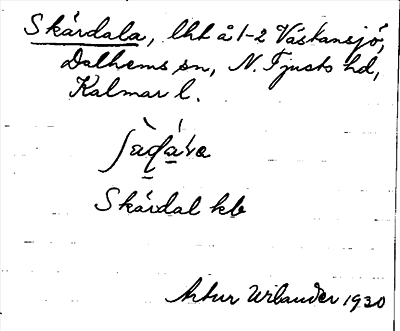 Skärdala, lht å 1-2 Västansjö,
Dalhems sn, N. Tjusts hd,
Kalmar l.
Skärdal kb
Artur Urbander 1930